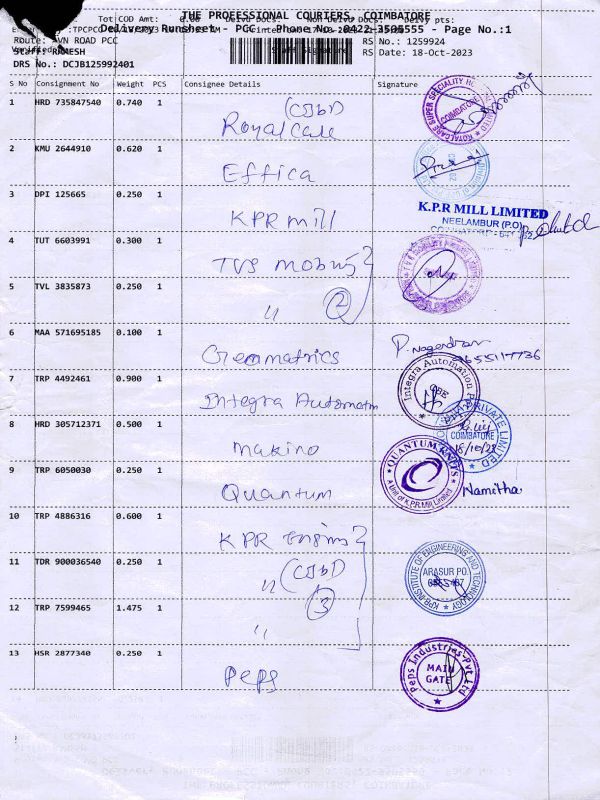 THE PROFESSIONAL COURIERS - COIMBATORE
Tot COD Amt: 0.00 Delvd Docs: Non Delvd Docs: Delvd pts:
Delivery Runsheet - PCC Phone No. 0422-3505555 Page No.:1
Route: AVN ROAD PCC
RS No.: 1259924
Staff: RAKESH
RS Date: 18-Oct-2023
DRS No.: DCJB125992401
S No Consignment No Weight PCS Consignee Details Signature
1 HRD 735847540 0.740 1 Royalcare (CJBI)
COIMBATORE
2 KMU 2644910 0.620 1 Effica
3 DPI 125665 0.250 1 KPR mill
K.P.R MILL LIMITED
NEELAMBUR (P.O)
4 TUT 6603991 0.300 1 TVS
5 TVL 3835873 0.250 1 " 2
6 MAA 571695185 0.100 1 Geomatrics P. Nagendran
9655117736
7 TRP 4492461 0.900 1 Integra Automatm
Integra Automation
8 HRD 305712371 0.500 1 makino
PRIVATE LIMITED
COIMBATORE
18/10/23
9 TRP 6050030 0.250 1 Quantum Namitha
QUANTUM KNITS
A Unit of K.P.R Mill Limited
10 TRP 4886316 0.600 1 KPR
11 TDR 900036540 0.250 1 " (CJBI)
KPR INSTITUTE OF ENGINEERING AND TECHNOLOGY
ARASUR PO.
12 TRP 7599465 1.475 1 " 3
13 HSR 2877340 0.250 1 Peps
Peps Industries Pvt Ltd
MAIN
GATE